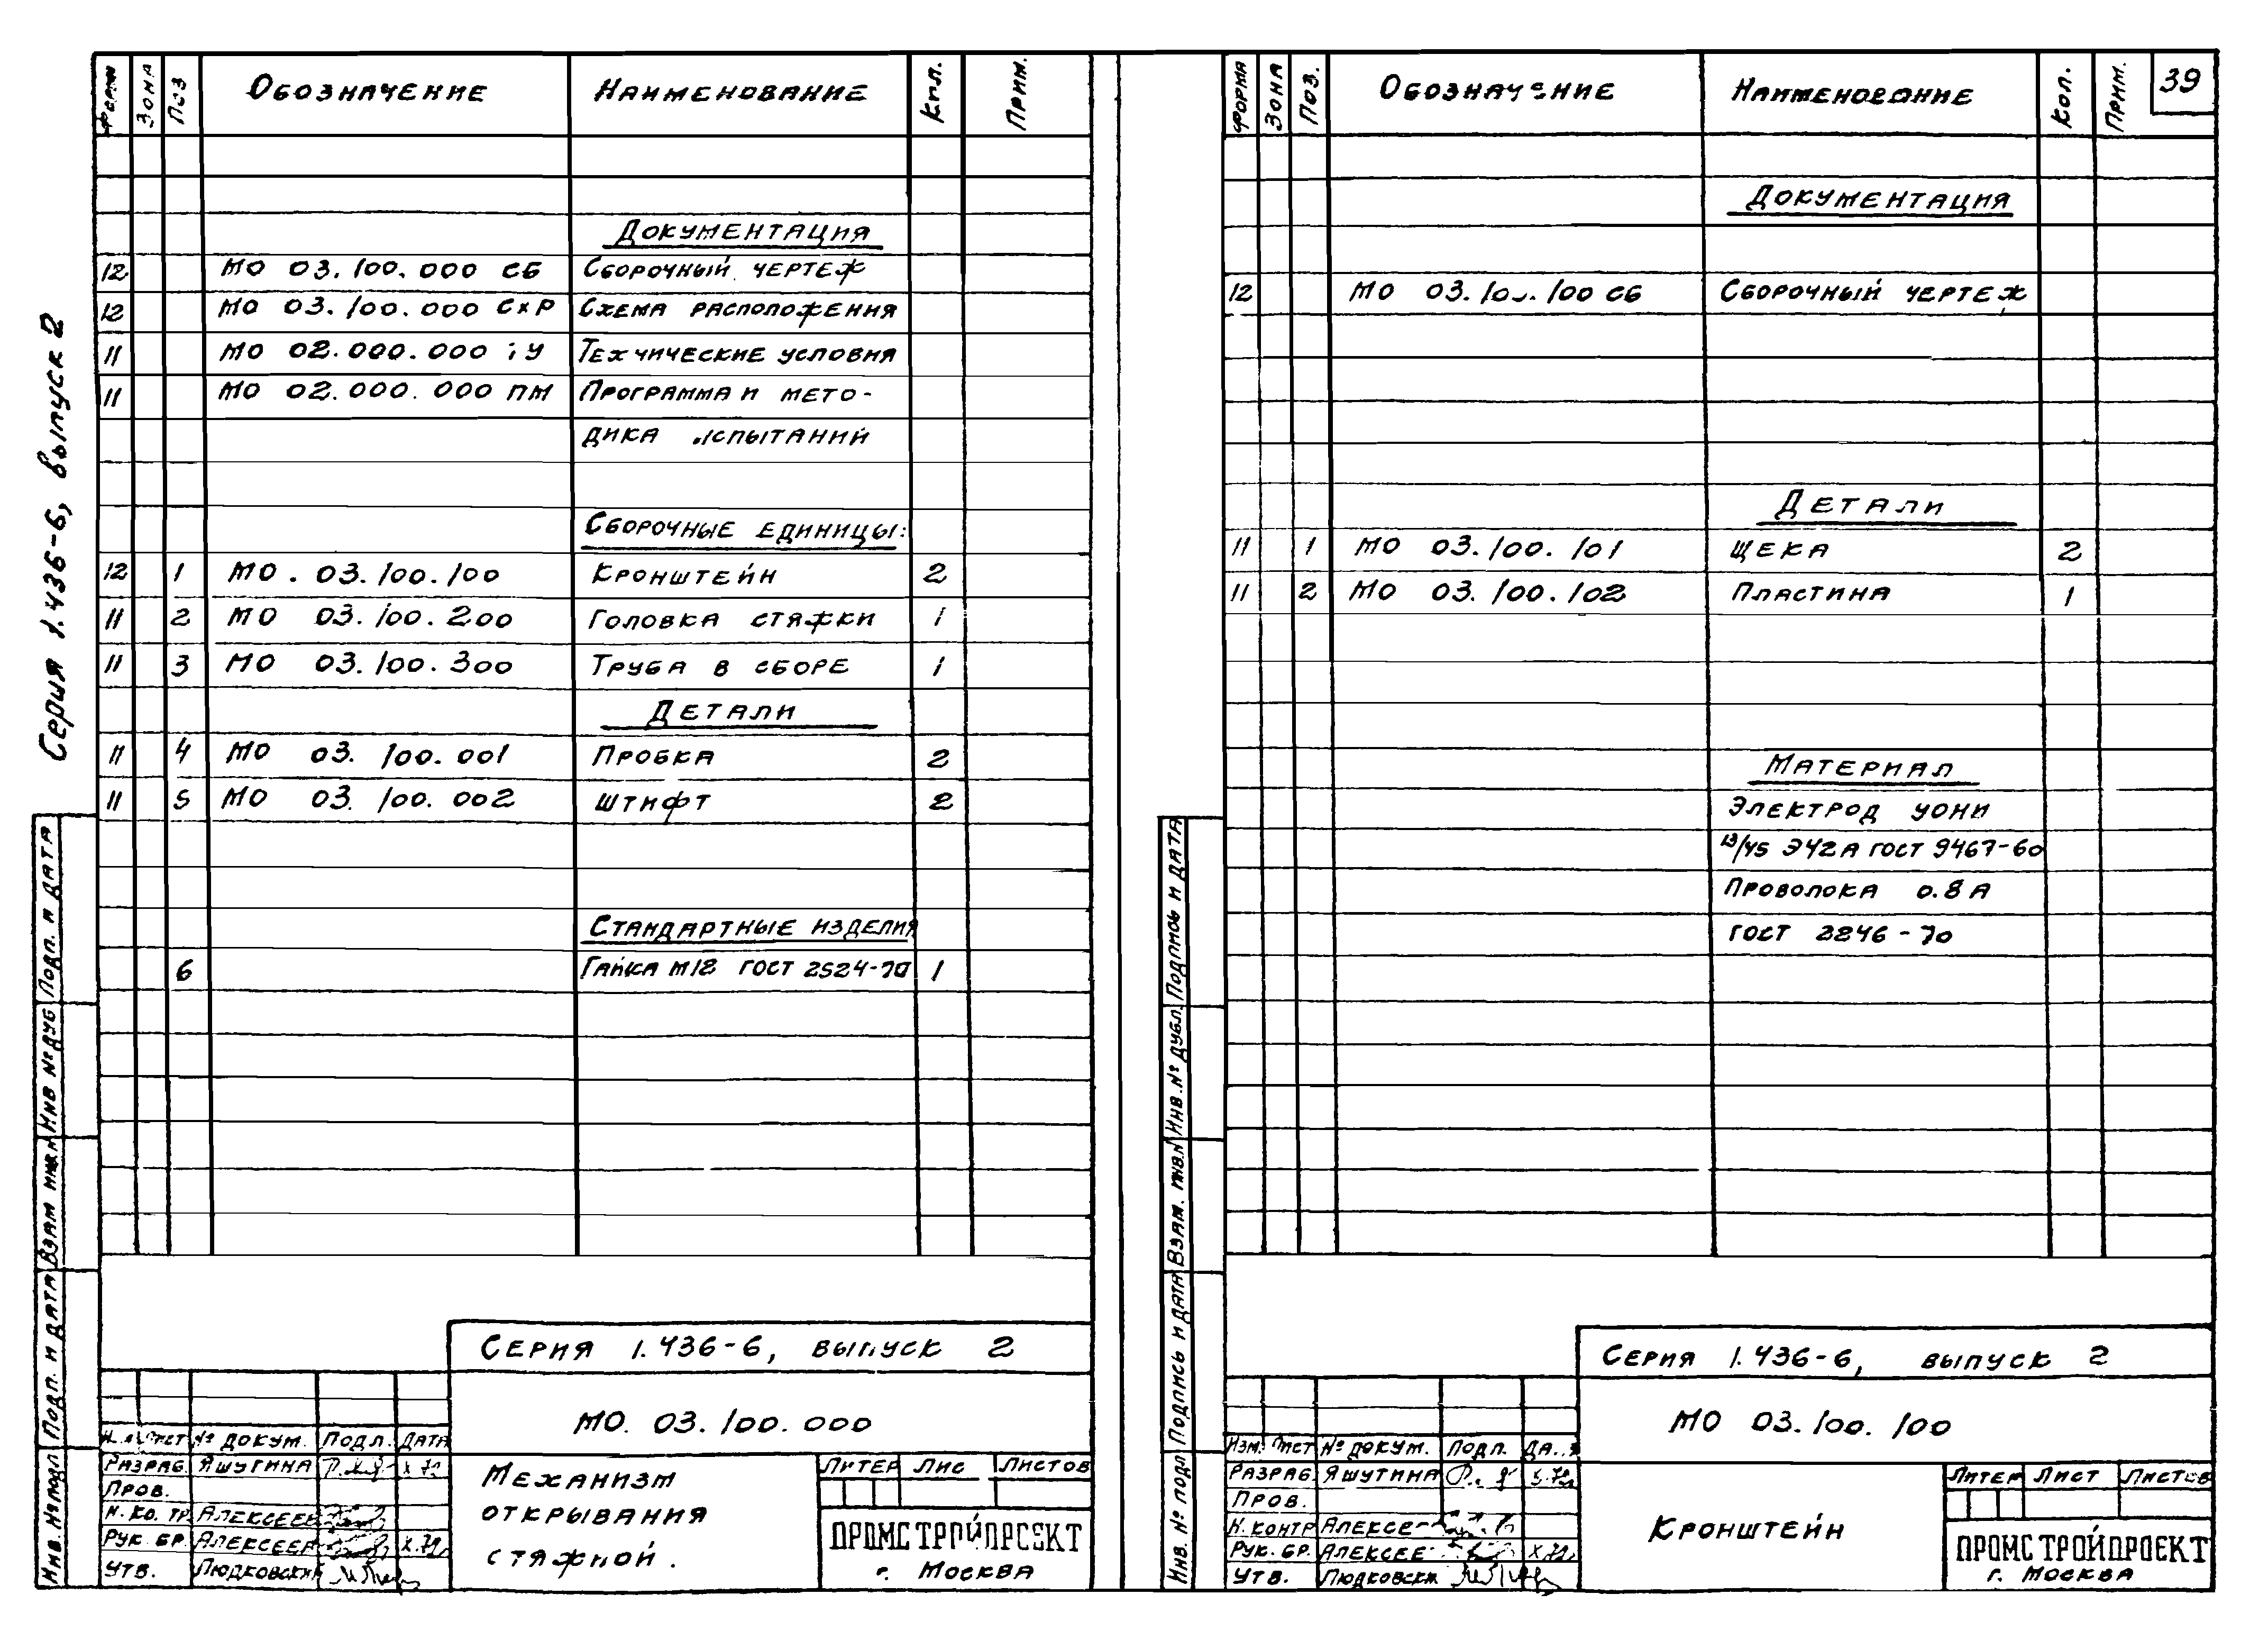 Серия 1.436-6, выпуск 2
Форм Зона Поз Обозначение Наименование Кпл. Прим.
Документация
12 МО 03.100.000 СБ Сборочный чертеж
12 МО 03.100.000 СхР Схема расположения
11 МО 02.000.000 ТУ Технические условия
11 МО 02.000.000 ПМ Программа и мето-
дика испытаний
Сборочные единицы:
12 1 МО. 03.100.100 Кронштейн 2
11 2 МО 03.100.200 Головка стяжки 1
11 3 МО 03.100.300 Труба в сборе 1
Детали
11 4 МО 03.100.001 Пробка 2
11 5 МО 03.100.002 Штифт 2
Стандартные изделия
6 Гайка М12 ГОСТ 2524-70 1
Подп. и дата
Инв № дуб
Взам инв.н
Подп. и дата
Инв. № подл
Серия 1.436-6, выпуск 2
МО. 03.100.000
Лист № докум. Подл. Дата
Разраб. Яшутина X 72
Пров.
Н. ко. тр. Алексеев
Рук. бр. Алексеев X.72
Утв. Людковский
Механизм
открывания
стяжной.
Литер Лис Листов
ПРОМСТРОЙПРОЕКТ
г. Москва
39
Форма Зона Поз. Обозначение Наименование Кол. Прим.
Документация
12 МО 03.100.100 СБ Сборочный чертеж
Детали
11 1 МО 03.100.101 Щека 2
11 2 МО 03.100.102 Пластина 1
Материал
Электрод УОНИ
13/45 Э42А ГОСТ 9467-60
Проволока 0.8А
ГОСТ 2246-70
Подпись и дата
Инв. № дубл.
Взам. инв.н
Подпись и дата
Инв. № подл
Серия 1.436-6, выпуск 2
МО 03.100.100
Изм. Лист № докум. Подл. Да..а
Разраб. Яшутина X.72
Пров.
Н.контр Алексе
Рук. бр. Алексее X.72
Утв. Людковски
Кронштейн
Литер Лист Листов
ПРОМСТРОЙПРОЕКТ
г. Москва